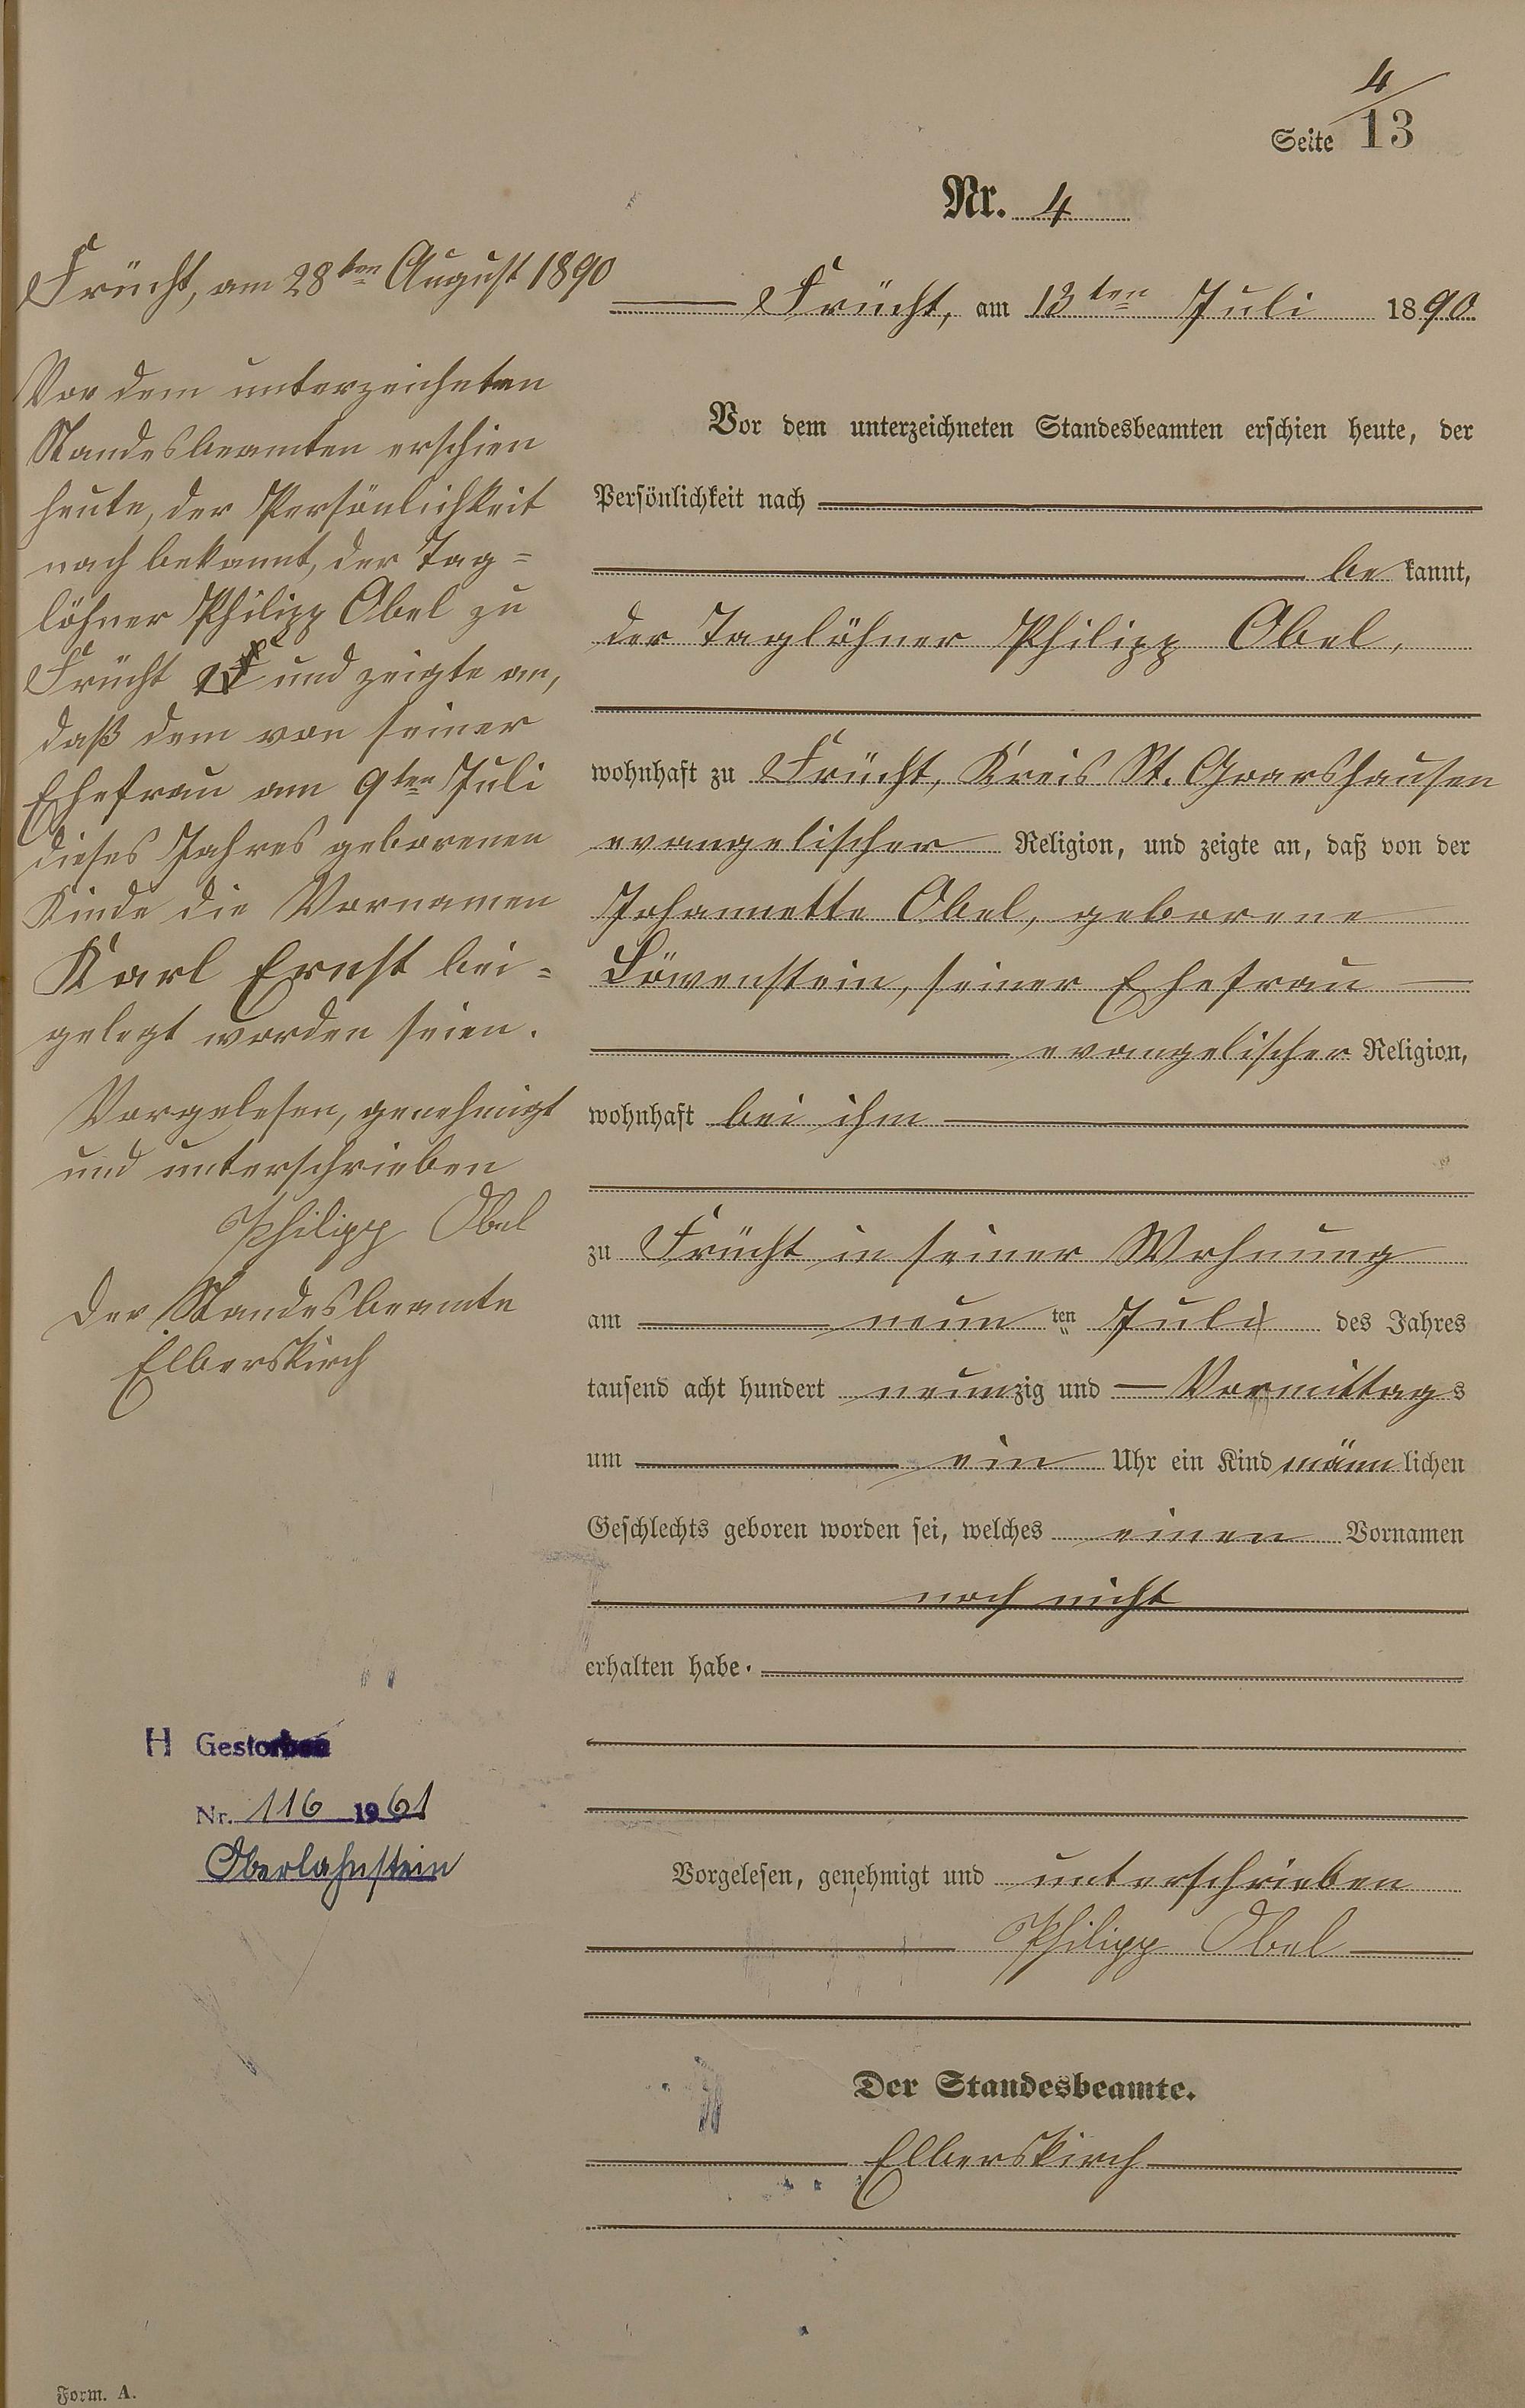 4
Seite 13
Nr. 4
Frücht, am 28ten August 1890
Vor dem unterzeichneten
Standesbeamten erschien
heute, der Persönlichkeit
nach bekannt, der Tag=
löhner Philipp Obel zu
Frücht und zeigte an,
daß dem von seiner
Ehefrau am 9ten Juli
dieses Jahres geborenen
Kinde die Vornamen
Karl Ernst bei=
gelegt worden seien.
Vorgelesen, genehmigt
und unterschrieben
Philipp Obel
Der Standesbeamte
Elberskirch
H Gestorben
Nr. 116 1961
Oberlahnstein
Frücht, am 13ten Juli 1890
Vor dem unterzeichneten Standesbeamten erschien heute, der
Persönlichkeit nach
bekannt,
der Taglöhner Philipp Obel,
wohnhaft zu Frücht, Kreis St. Goarshausen
evangelischer Religion, und zeigte an, daß von der
Johannette Obel, geborene
Löwenstein, seiner Ehefrau
evangelischer Religion,
wohnhaft bei ihm
zu Frücht in seiner Wohnung
am neun ten Juli des Jahres
tausend acht hundert neunzig und Vormittags
um ein Uhr ein Kind männlichen
Geschlechts geboren worden sei, welches einen Vornamen
noch nicht
erhalten habe.
Vorgelesen, genehmigt und unterschrieben
Philipp Obel
Der Standesbeamte.
Elberskirch
Form. A.